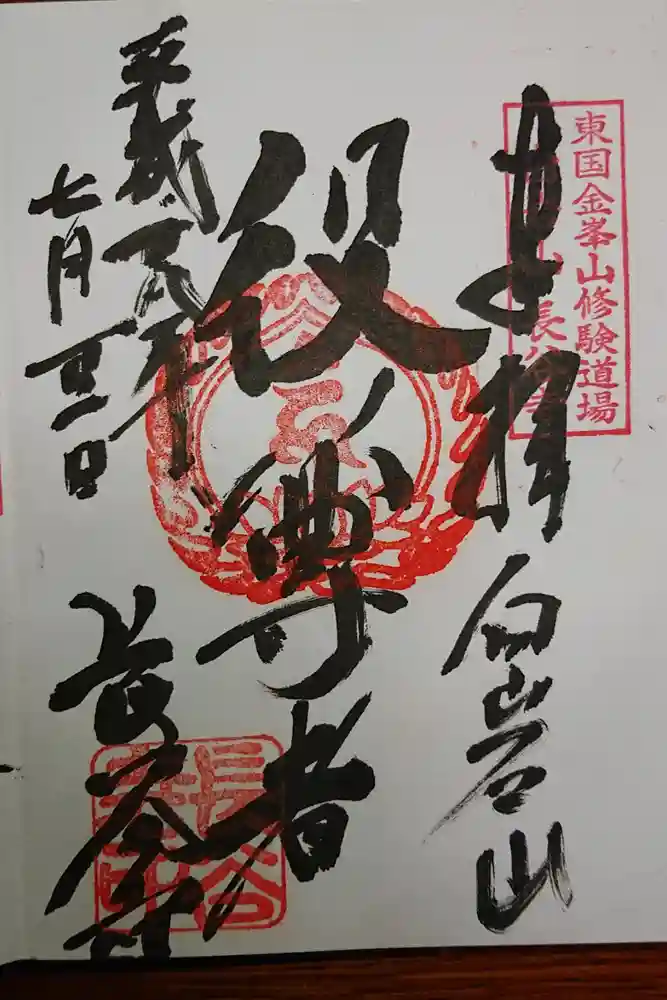 東国金峯山修験道場
長谷寺
奉拝
白岩山
役尊者
平成二八年
七月
日
長谷寺
長谷